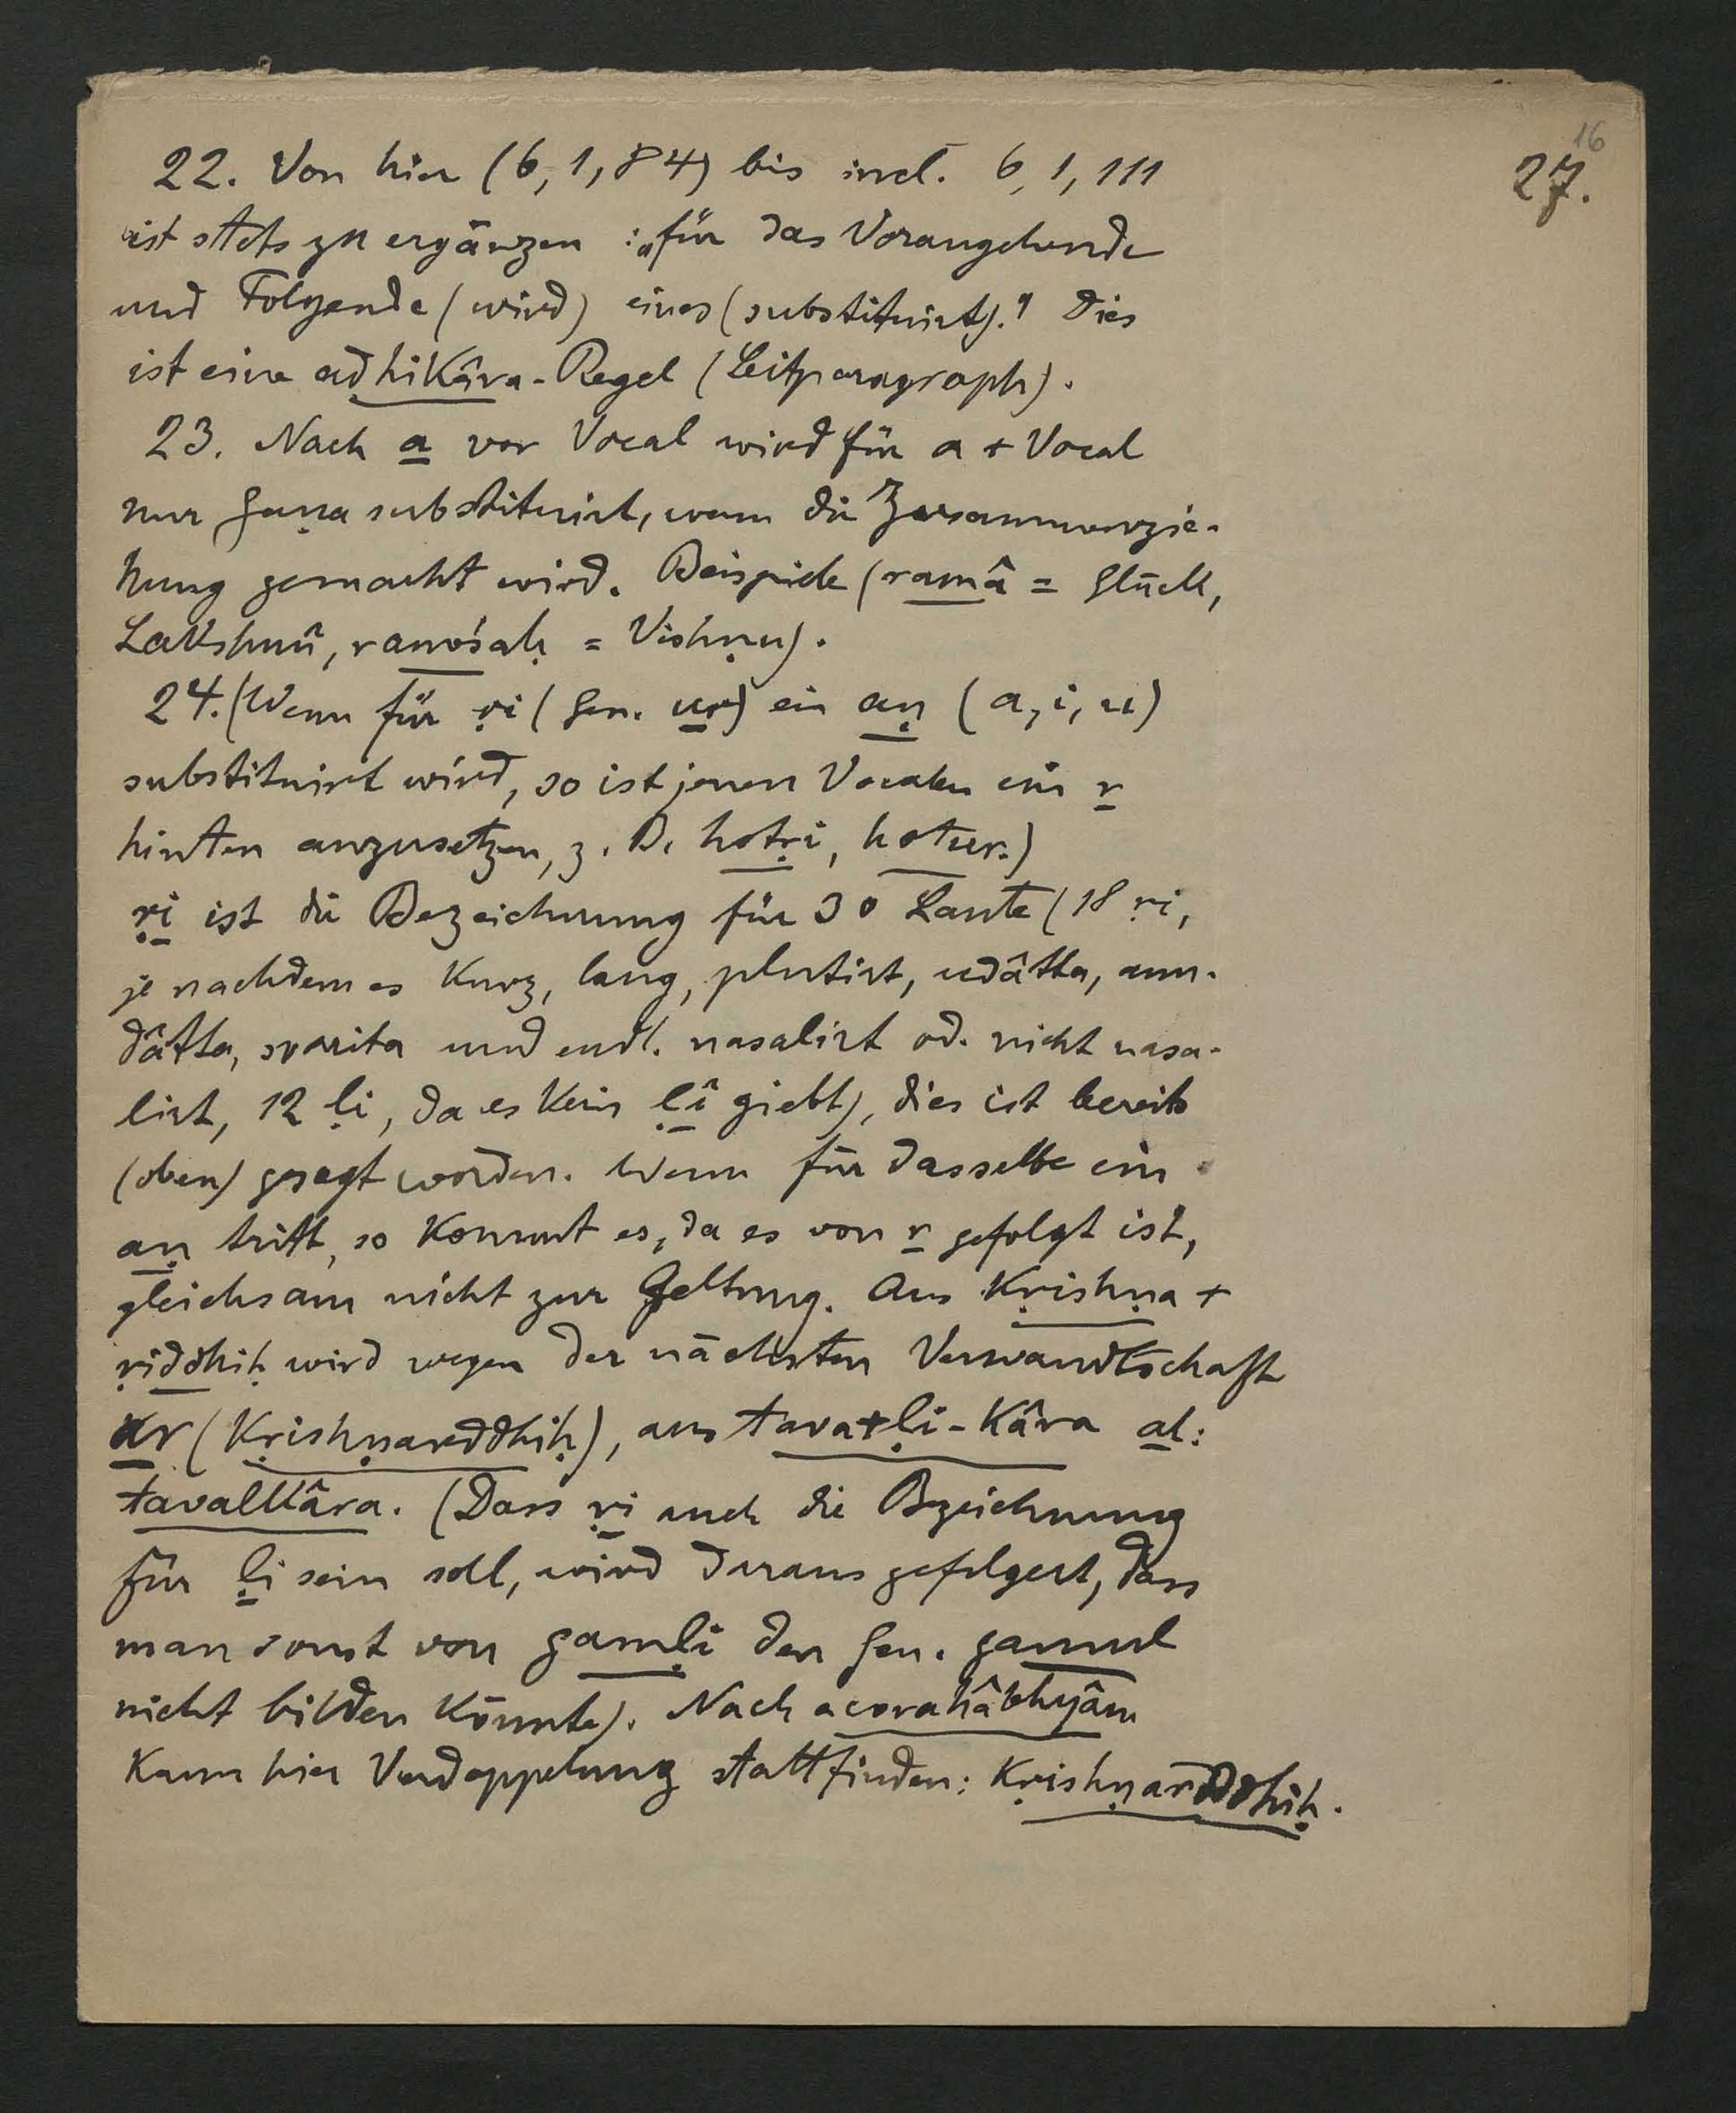 16
27.
22. Von hier (6, 1, 84) bis incl. 6, 1, 111
ist stets zu ergänzen: „für das Vorangehende
und Folgende (wird) eines (substituirt)." Dies
ist eine adhikâra-Regel (Leitparagraph).
23. Nach a vor Vocal wird für a + Vocal
nur guṇa substituirt, wenn die Zusammenzie-
hung gemacht wird. Beispiele (ramâ = Glück,
Lakshmî, rameśaḥ = Vishṇu).
24. (Wenn für ṛi (Gen. ur) ein aṇ (a, i, u)
substituirt wird, so ist jenen Vocalen ein r
hinten anzusetzen, z. B. hotṛi, hotur.)
ṛi ist die Bezeichnung für 30 Laute (18 ṛi,
je nachdem es kurz, lang, plutirt, udâtta, anu-
dâtta, svarita und endl. nasalirt od. nicht nasa-
lirt, 12 ḷi, da es kein ḷî giebt), dies ist bereits
(oben) gesagt worden. Wenn für dasselbe ein
aṇ tritt, so kommt es, da es von r gefolgt ist,
gleichsam nicht zur Geltung. Aus Kṛishṇa +
ṛiddhiḥ wird wegen der nächsten Verwandtschaft
ar (Kṛishṇarddhiḥ), aus tava+ḷi-kâra al:
tavalkâra. (Dass ṛi auch die Bezeichnung
für ḷi sein soll, wird daraus gefolgert, dass
man sonst von gamḷi den Gen. gamul
nicht bilden könnte). Nach acorahâbhyâm
kann hier Verdoppelung stattfinden: Kṛishṇarddhiḥ.